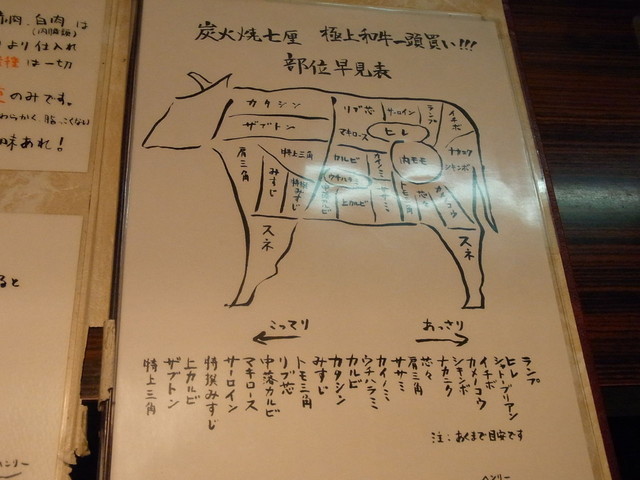 赤肉、白肉は
(内臓類)
より仕入れ
は一切
のみです。
やわらかく脂っこくない
味あれ！
ると
炭火焼七厘 極上和牛一頭買い!!!
部位早見表
カタシン
ザブトン
リブ芯
サーロイン
ランプ
イチボ
マキロース
ヒレ
肩三角
特上三角
みすじ
特撰みすじ
カルビ
ウチハラミ
中落カルビ
上カルビ
カイノミ
ササミ
内モモ
トモ三角
芯々
カメノコウ
ナカニク
シキンボ
スネ
スネ
こってり
あっさり
ランプ
ヒレ
シャトーブリアン
イチボ
カメノコウ
シキンボ
ナカニク
芯々
肩三角
ササミ
カイノミ
ウチハラミ
カルビ
カタシン
みすじ
トモ三角
リブ芯
中落カルビ
マキロース
サーロイン
特撰みすじ
上カルビ
ザブトン
特上三角
注：あくまで目安です
ヘンリー
ヘンリー